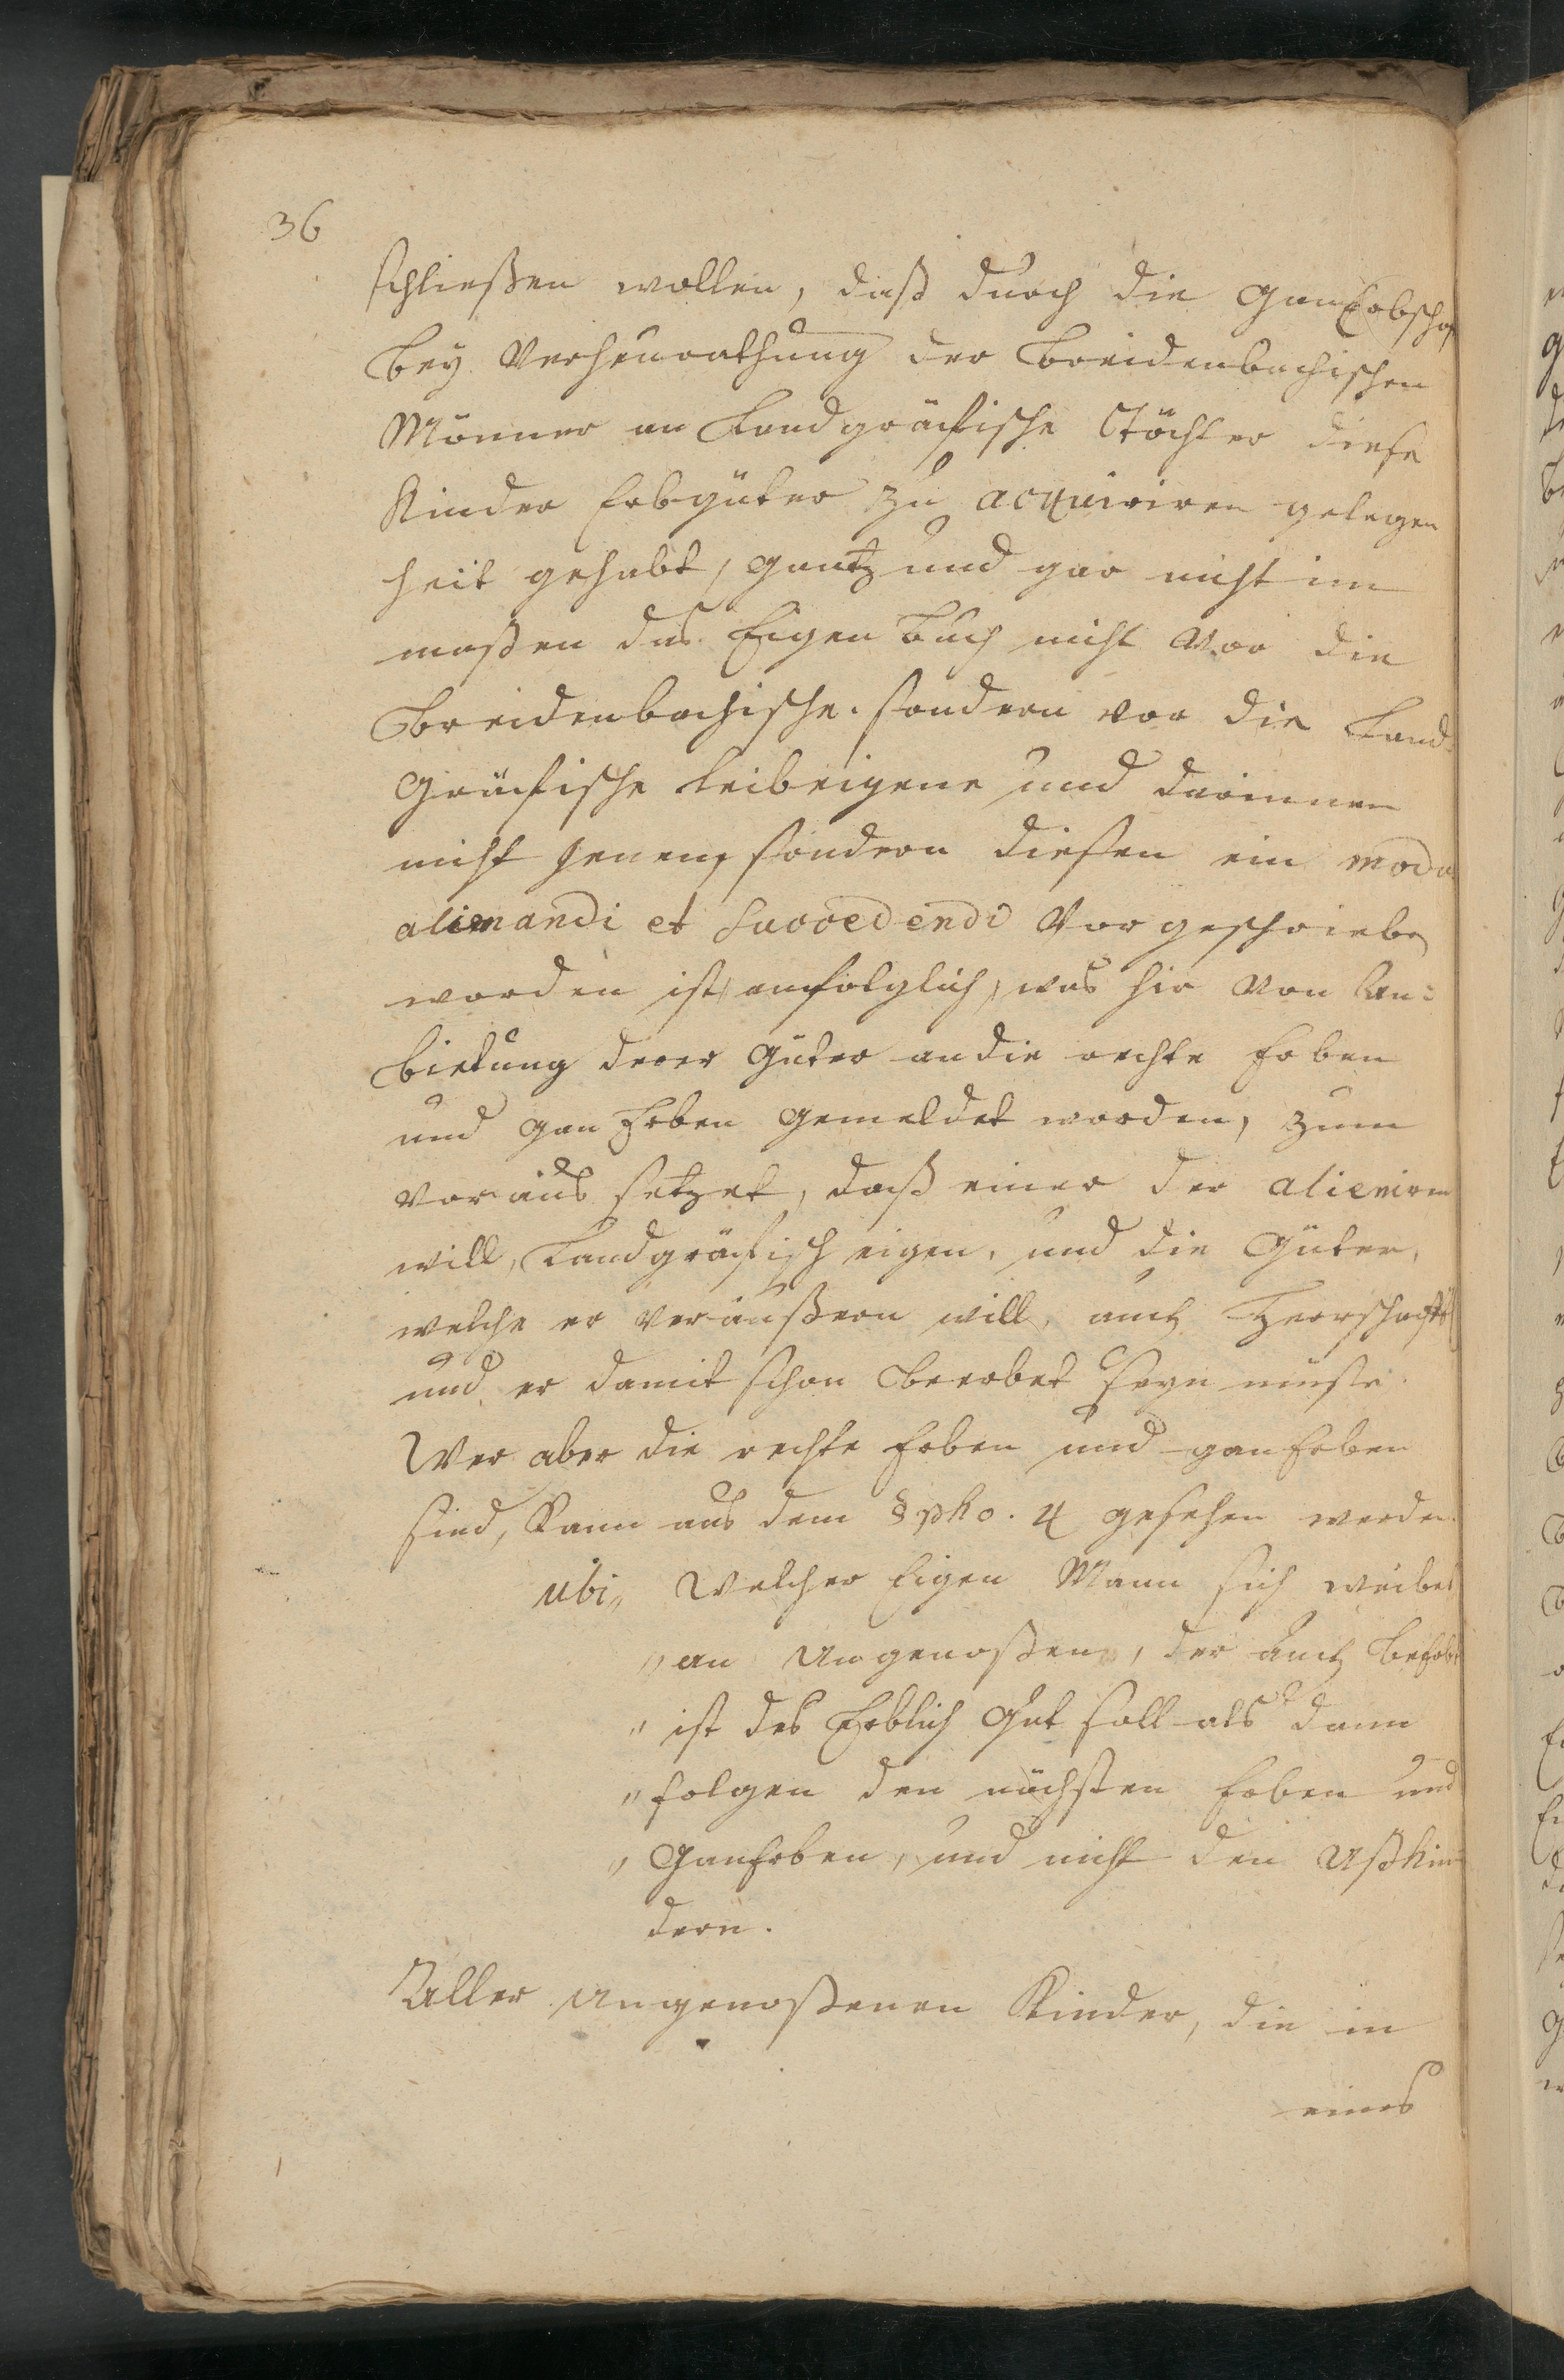 36
schließen wollen, daß durch die GanErbschaf
bey Verheurathung der Breidenbachischen
Männer an Landgräfische Töchter diese
Kinder Erbgüter zu acquiriren gelegen
heit gehabt, gantz und gar nicht im
maßen das Eigen Buch nicht vor die
Breidenbachische. sondern vor die Land-
Gräfische leibeigene und darinnen
nicht jenen, sondern diesen ein modu
alienandi et succedendi vorgeschrieben
worden ist, umfolglich, was hir von An-
bietung derer Güter an die rechte Erben
und GanErben gemeldet worden, zum
voraus setzet, daß einer der alieniren
will, Landgräfisch eigen, und die Güter,
welche er veräußern will, auch Herrschaftl
und er damit schon beerbet seyn müste.
Wer aber die rechte Erben und ganErben
sind, kann aus dem § pho. 4 gesehen werden.
ubi „ Welcher Eigen Mann sich weibet
„ an Ungenoßen, der auch beErbt
„ ist des Erblich Gut soll als dann
„ folgen den nächsten Erben und
„ GanErben, und nicht den Ußkin-
dern.
Aller Ungenoßenen Kinder, die in
eines